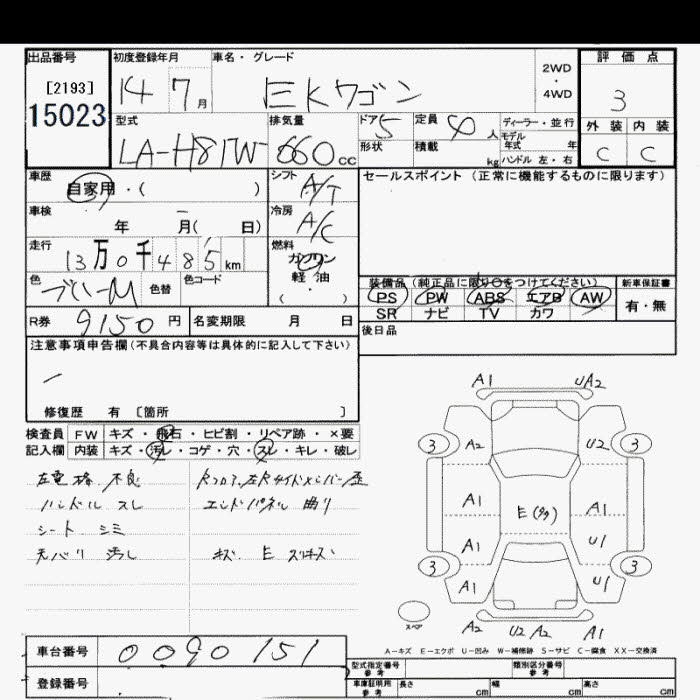 出品番号 初度登録年月 車名・グレード 2WD・4WD 評価点
[2193] 14 7月 EKワゴン 3
15023 型式 排気量 ドア 5 定員 4人 ディーラー・並行 外装 内装
LA-H81W 660cc 形状 積載 kg モデル年式 年 C C
ハンドル 左・右
車歴 シフト セールスポイント (正常に機能するものに限ります)
自家用・( ) A/T
車検 年 月( 日) 冷房 A/C
走行 13万0千485km 燃料 ガソリン
色 ブルーM 色替 色コード 軽・油
・( )
装備品 (純正品に限り○をつけてください) 新車保証書
PS PW ABS エアB AW 有・無
SR ナビ TV カワ
R券 9150円 名変期限 月 日 後日品
注意事項申告欄(不具合内容等は具体的に記入して下さい)
修復歴 有 [箇所 ]
検査員 FW キズ・飛石・ヒビ割・リペア跡・×要
記入欄 内装 キズ・汚レ・コゲ・穴・スレ・キレ・破レ
不良
ハンドル スレ エンドパネル 曲り
シート シミ
天バリ 汚レ キズ E スリキズ
A1 UA2
3 A2 U2 3
A1 E(多) A1
A1 U1
3 A1 U1 3
スペア
A2 U2 A2 A1
A-キズ E-エクボ U-凹み W-補修跡 S-サビ C-腐食 XX-交換済
車台番号 0090151
登録番号
型式指定番号 参考 類別区分番号 参考
車庫証明用 参考 長さ cm 幅 cm 高さ cm